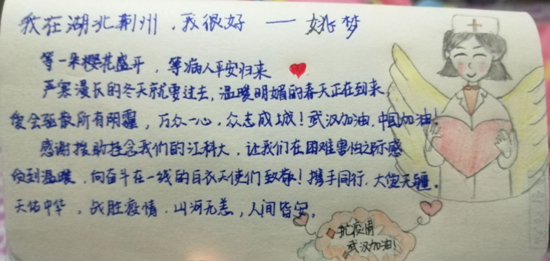 我在湖北荆州,我很好 —— 姚梦
等一朵樱花盛开,等病人平安归来
严寒漫长的冬天就要过去,温暖明媚的春天正在到来,
爱会驱散所有阴霾,万众一心,众志成城!武汉加油,中国加油!
感谢援助包含我们的江科大,让我们在困难害怕之际感
受到温暖,向奋斗在一线的白衣天使们致敬!携手同行,大爱无疆,
天佑中华,战胜疫情,山河无恙,人间皆安。
抗疫情
武汉加油!